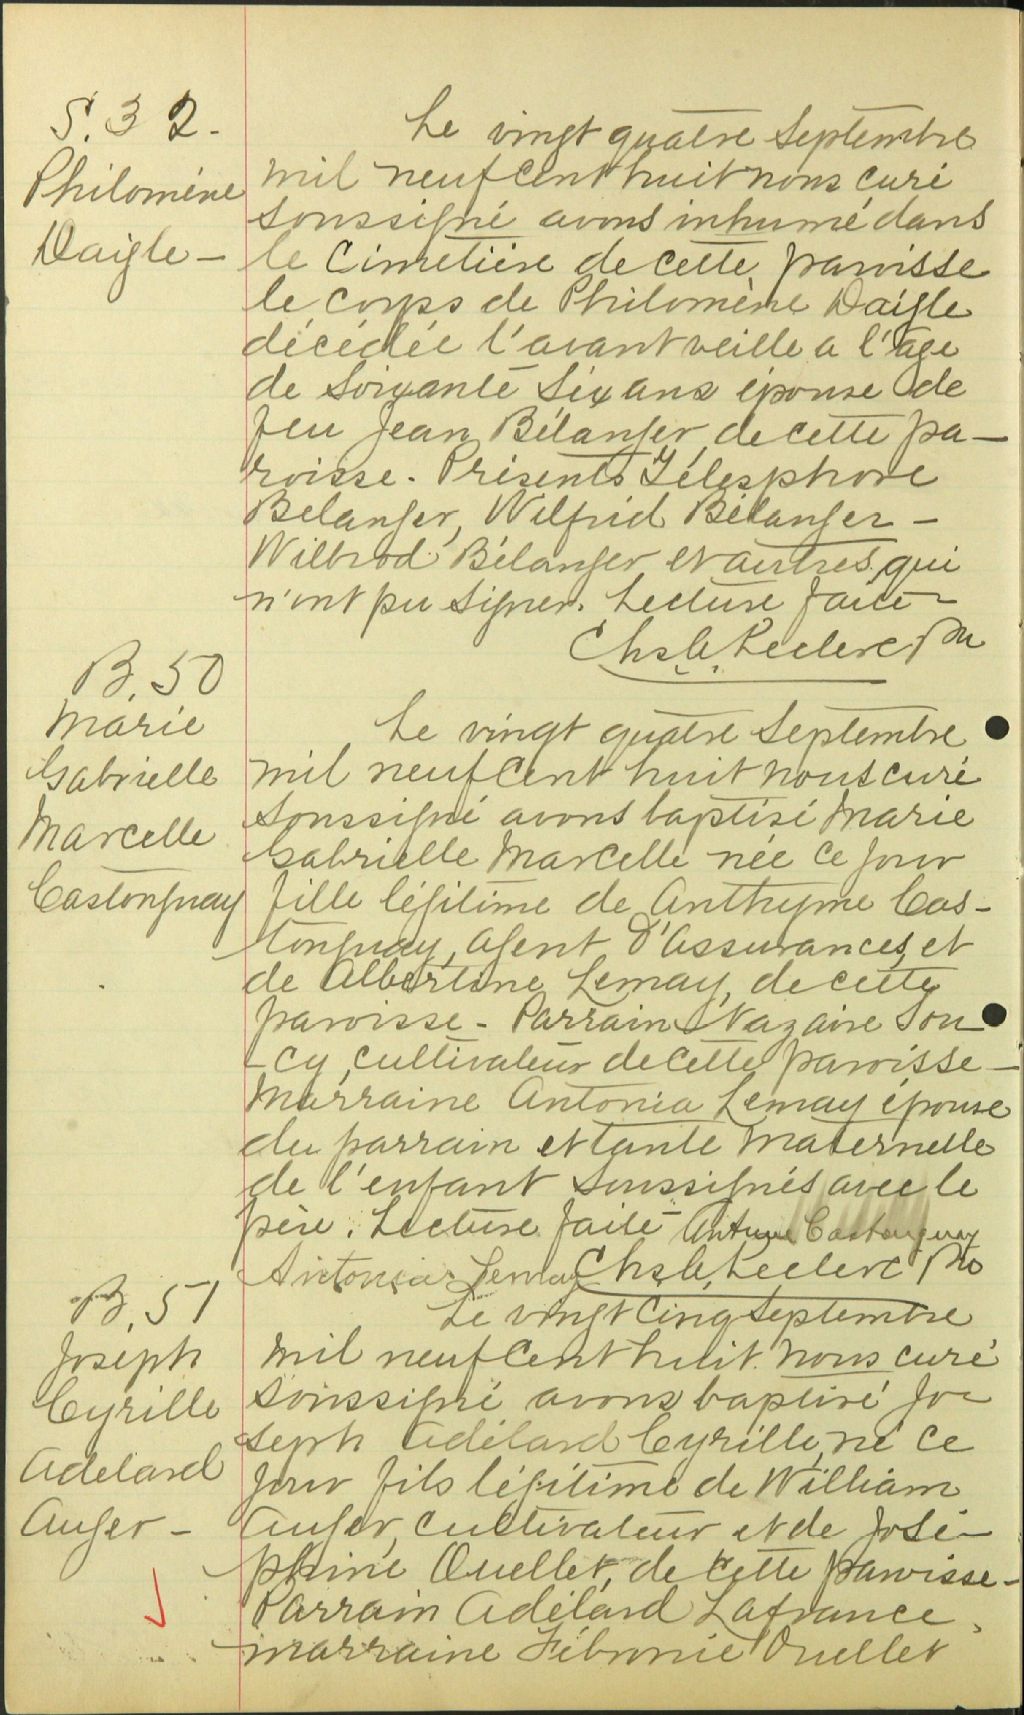 S. 32.
Philomène
Daigle —
Le vingt quatre Septembre
mil neuf cent huit nous curé
soussigné avons inhumé dans
le Cimetière de cette paroisse
le corps de Philomène Daigle
décédée l'avant veille a l'âge
de soixante six ans épouse de
feu Jean Bélanger de cette pa-
roisse. Présents Télesphore
Belanger, Wilfrid Bélanger -
Wilbrod Bélanger et autres qui
n'ont pu signer. Lecture faite -
Chs. Leclerc Ptre
B. 50
Marie
Gabrielle
Marcelle
Castonguay
Le vingt quatre Septembre
mil neuf cent huit nous curé
soussigné avons baptisé Marie
Gabrielle Marcelle née ce jour
fille légitime de Anthyme Cas-
tonguay, agent d'assurances, et
de Albertine Lemay, de cette
paroisse - Parrain Nazaire Sou-
-cy, cultivateur de cette paroisse -
Marraine Antonia Lemay épouse
du parrain et tante maternelle
de l'enfant soussignés avec le
père. Lecture faite - Castonguay
Antonia Lemay Chs. Leclerc Ptre
B. 51
Joseph
Cyrille
Adelard
Auger -
Le vingt cinq Septembre
mil neuf cent huit nous curé
soussigné avons baptisé Jo-
seph Adélard Cyrille, né ce
jour fils légitime de William
Auger, cultivateur et de José-
phine Ouellet, de cette paroisse -
Parrain Adélard Lafrance,
marraine Fébronie Ouellet